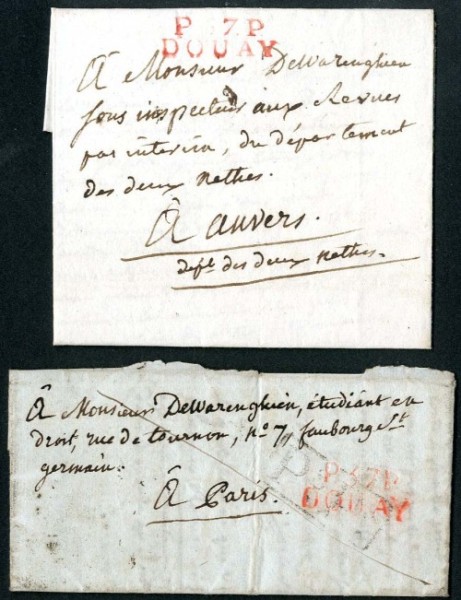 P 57 P
DOUAY
À Monsieur DeWarenghien
sous inspecteur aux Revues
par interim, du département
des deux nethes.
À anvers.
dept. des deux nethes.
À Monsieur DeWarenghien, étudiant en
droit, rue de tournon, no 7, faubourg St.
germain.
À Paris.
P. 57 P.
DOUAY